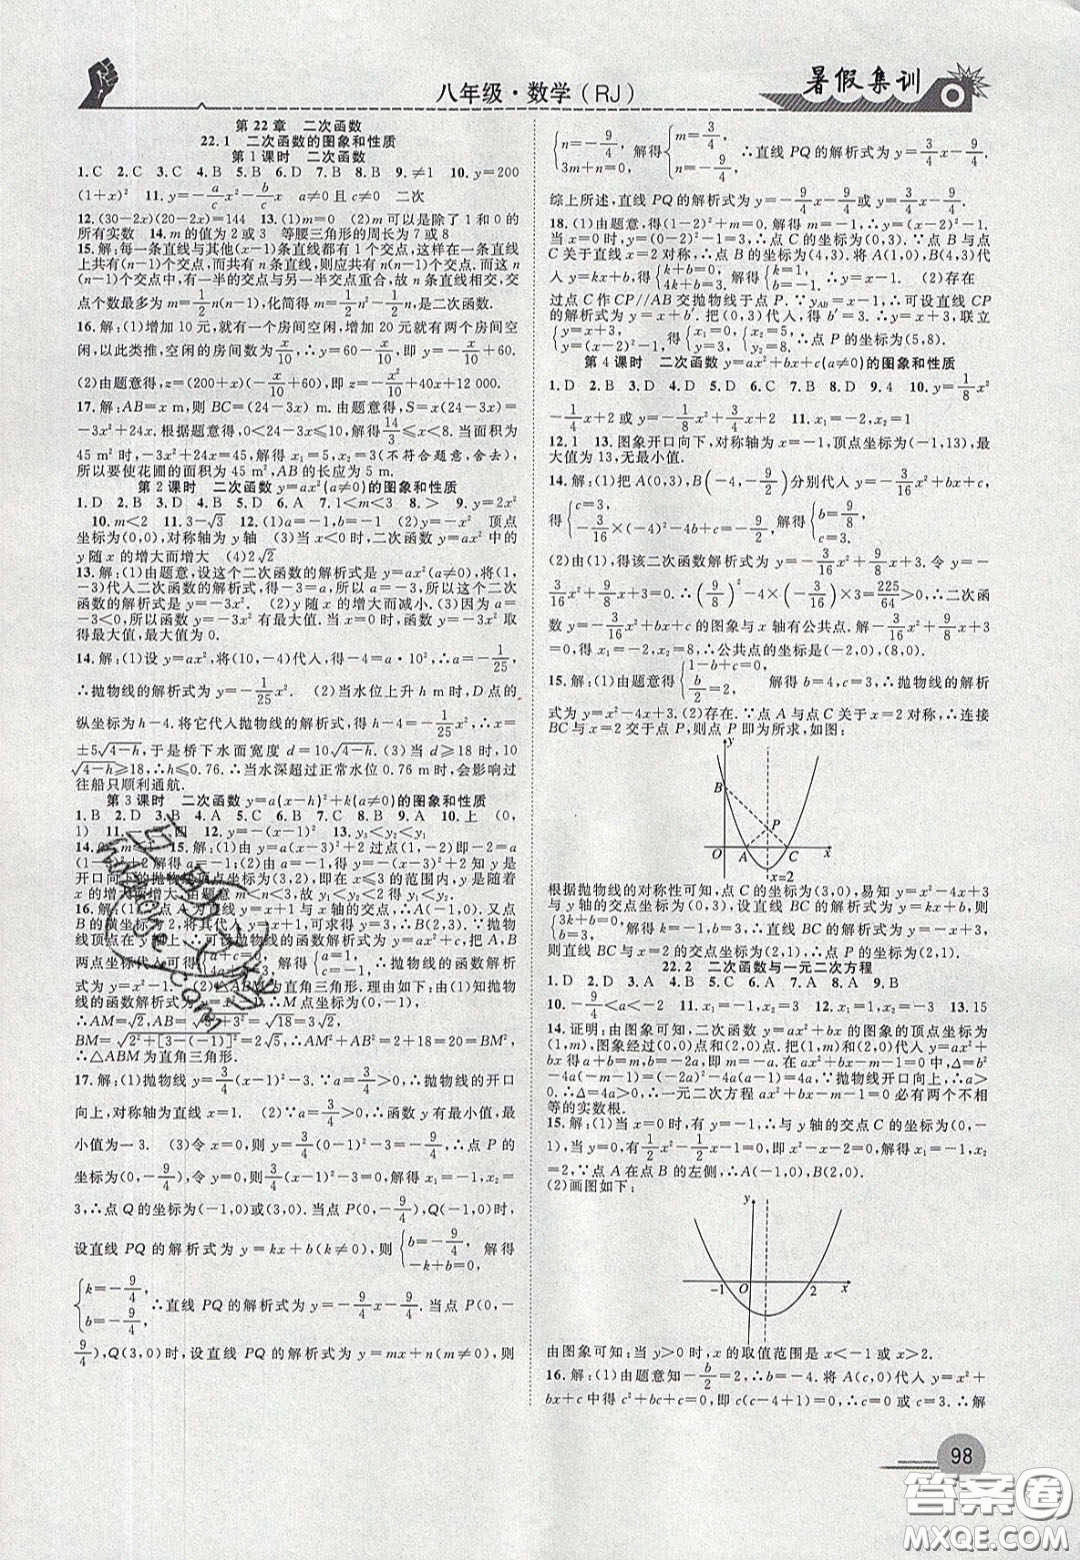 八年级·数学(RJ)
暑假集训
第22章 二次函数
22.1 二次函数的图象和性质
第1课时 二次函数
1.C 2.C 3.C 4.B 5.B 6.D 7.B 8.B 9.≠1 10.y=200
(1+x)² 11.y=-a/c x²-b/c x a≠0且c≠0 二次
12.(30-2x)(20-2x)=144 13.(1)m=0 (2)m可以是除了1和0的
所有实数 14.m的值为2或3 等腰三角形的周长为7或8
15.解:每一条直线与其他(x-1)条直线都有1个交点,这样在一条直线
上共有(n-1)个交点,而共有n条直线,则应共有n(n-1)个交点.而这
n(n-1)个交点中,有一半的交点与另一半交点重合,故n条直线相交,交
点个数最多为m=1/2n(n-1),化简得m=1/2n²-1/2n,是二次函数.
16.解:(1)增加10元,就有一个房间空闲,增加20元就有两个房间空
闲,以此类推,空闲的房间数为x/10,∴y=60-x/10,即y=-x/10+60.
(2)由题意得,z=(200+x)(60-x/10),即z=-1/10x²+40x+12 000.
17.解:AB=x m,则BC=(24-3x) m.由题意得,S=x(24-3x)=
-3x²+24x.根据题意得,0<24-3x≤10,解得14/3≤x<8.当面积为
45 m²时,-3x²+24x=45,解得x₁=5,x₂=3(不符合题意,舍去),
所以要使花圃的面积为45 m²,AB的长应为5 m.
第2课时 二次函数y=ax²(a≠0)的图象和性质
1.D 2.B 3.D 4.B 5.D 6.A 7.1<m<3 8.> 9.y=2x²
10.m<2 11.3-√3 12.(1)a=-1,b=-1 (2)y=-x² 顶点
坐标为(0,0),对称轴为y轴 (3)当x<0时,二次函数y=ax²中的
y随x的增大而增大 (4)2√2
13.解:(1)由题意,设这个二次函数的解析式是y=ax²(a≠0),将(1,
-3)代入二次函数解析式,得-3=a,所以a=-3,所以这个二次
函数的解析式是y=-3x². (2)y随x的增大而减小.(3)因为a=
-3<0,所以函数y=-3x²有最大值.当x=0时,函数y=-3x²取
得最大值,最大值为0.
14.解:(1)设y=ax²,将(10,-4)代入,得-4=a·10²,∴a=-1/25
∴抛物线的解析式为y=-1/25x². (2)当水位上升h m时,D点的
纵坐标为h-4.将它代入抛物线的解析式,得h-4=-1/25x²,∴x=
±5√4-h,于是桥下水面宽度d=10√4-h.(3)当d≥18时,10
√4-h≥18,∴h≤0.76.∴当水深超过正常水位0.76 m时,会影响过
往船只顺利通航.
第3课时 二次函数y=a(x-h)²+k(a≠0)的图象和性质
1.B 2.D 3.B 4.A 5.C 6.C 7.B 8.B 9.A 10.上 (0,
1) 11. 四 12.y=-(x-1)² 13.y₃<y₂<y₁
15.解:(1)由y=a(x-3)²+2过点(1,-2),得
-1)²+2,解得a=-1.(2)由y=-(x-3)²+2可知
开口向下的抛物线顶点为(3,2),即在x≤3的范围内,y是随着
x的增大而增大,由题意m<n<3,故y₁<y₂.
16.解:(1)∵点A为直线y=x+1与x轴的交点,∴A(-1,0).又点
B的横坐标为2,将其代入y=x+1,可求得y=3,∴B(2,3).∵抛物
线顶点在y轴上,∴可设抛物线的函数解析式为y=ax²+c.把A,B
两点坐标代入可得{a+c=0, 4a+c=3, 解得{a=1, c=-1, ∴抛物线的函数解析
式为y=x²-1.(2)△ABM为直角三角形.理由如下:由(1)知抛物
线的函数解析式为y=x²-1,∴M点坐标为(0,-1),
∴AM=√2,AB=√3²+3²=√18=3√2,
BM=√2²+[3-(-1)]²=2√5,∴AM²+AB²=2+18=20=BM²,
∴△ABM为直角三角形.
17.解:(1)抛物线y=3/4(x-1)²-3,∵a=3/4>0,∴抛物线的开口
向上,对称轴为直线x=1. (2)∵a=3/4>0,∴函数y有最小值,最
小值为-3. (3)令x=0,则y=3/4(0-1)²-3=-9/4,∴点P的
坐标为(0,-9/4),令y=0,则3/4(x-1)²-3=0,解得x₁=-1,x₂=
3,∴点Q的坐标为(-1,0)或(3,0).当点P(0,-9/4),Q(-1,0)时,
设直线PQ的解析式为y=kx+b(k≠0),则{b=-9/4, -k+b=0, 解得
{k=-9/4, b=-9/4, ∴直线PQ的解析式为y=-9/4x-9/4.当点P(0,-
9/4),Q(3,0)时,设直线PQ的解析式为y=mx+n(m≠0),则
{n=-9/4, 3m+n=0, 解得{m=3/4, n=-9/4, ∴直线PQ的解析式为y=3/4x-9/4.
综上所述,直线PQ的解析式为y=-9/4x-9/4或y=3/4x-9/4.
18.(1)由题意,得(1-2)²+m=0.解得m=-1.∴y=(x-2)²-1.
当x=0时,y=(0-2)²-1=3,∴点C的坐标为(0,3).∵点B与点
C关于直线x=2对称,∴点B的坐标为(4,3).将A(1,0),B(4,3)代
入y=kx+b,得{k+b=0, 4k+b=3. 解得{k=1, b=-1. ∴y=x-1. (2)存在
过点C作CP//AB交抛物线于点P.∵y_AB=x-1,∴可设直线CP
的解析式为y=x+b′.把(0,3)代入,得b′=3.∴y=x+3.联立
{y=x+3, y=(x-2)²-1. 得{x₁=0, y₁=3. {x₂=5, y₂=8. ∴点P的坐标为(5,8).
第4课时 二次函数y=ax²+bx+c(a≠0)的图象和性质
1.D 2.B 3.D 4.D 5.C 6.D 7.B 8.D 9.4 10.y=1/8x²
-1/4x+2或y=-1/8x²+3/4x+2 11.x₁=2,x₂=1
12.1 13.图象开口向下,对称轴为x=-1,顶点坐标为(-1,13),最
大值为13,无最小值.
14.解:(1)把A(0,3),B(-4,-9/2)分别代入y=-3/16x²+bx+c,
得{c=3, -3/16×(-4)²-4b+c=-9/2, 解得{b=9/8, c=3.
(2)由(1),得该二次函数解析式为y=-3/16x²+9/8x+3.令y=
-3/16x²+9/8x+3=0.∵(9/8)²-4×(-3/16)×3=225/64>0,∴二次函
数y=-3/16x²+bx+c的图象与x轴有公共点.解-3/16x²+9/8x+3=
0,得x₁=-2,x₂=8,∴公共点的坐标是(-2,0),(8,0).
15.解:(1)由题意得{1-b+c=0, b/2=2, 解得b=4,c=3,∴抛物线的解析
式为y=x²-4x+3.(2)存在.∵点A与点C关于x=2对称,∴连接
BC与x=2交于点P,则点P即为所求,如图:
y
B
P
O A C x
x=2
根据抛物线的对称性可知,点C的坐标为(3,0),易知y=x²-4x+3
与y轴的交点坐标为(0,3),设直线BC的解析式为y=kx+b,则
{3k+b=0, b=3, 解得k=-1,b=3,∴直线BC的解析式为y=-x+3,
则直线BC与x=2的交点坐标为(2,1),∴点P的坐标为(2,1).
22.2 二次函数与一元二次方程
1.D 2.D 3.C 4.A 5.D 6.B 7.B 8.D 9.B
10.-9/4<a<-2 11.x₁=-1,x₂=3 12.x₁=-1,x₂=3 13.15
14.证明:由图象可知,二次函数y=ax²+bx的图象的顶点坐标为
(1,m),图象经过(0,0)点和(2,0)点.把(1,m)和(2,0)代入y=ax²+
bx得a+b=m,b=-2a,即m=-a.在ax²+bx-m-1=0中,Δ=
b²-4a(-m-1)=4a,∵抛物线开口向上,∴a>
0.∴Δ=4a>0,∴一元二次方程ax²+bx-m-1=0必有两个不相
等的实数根.
15.解:(1)当x=0时,y=-1.∴与y轴的交点C的坐标为(0,
-1),当y=0时,有1/2x²-1/2x-1=0,解得x₁=-1,x₂
=2,∵点A在点B的左侧,∴A(-1,0),B(2,0).
(2)画图如下:
y
-1 O 2 x
由图象可知:当y>0时,x的取值范围是x<-1或x>2.
16.解:(1)由题意知-b/2=2,∴b=-4.将A(c,0)代入y=x²+
bx+c中得c²+bc+c=0,即c(c-4+1)=0,∴c=0或c=3.∴解
98
答案圈
MXQE.COM